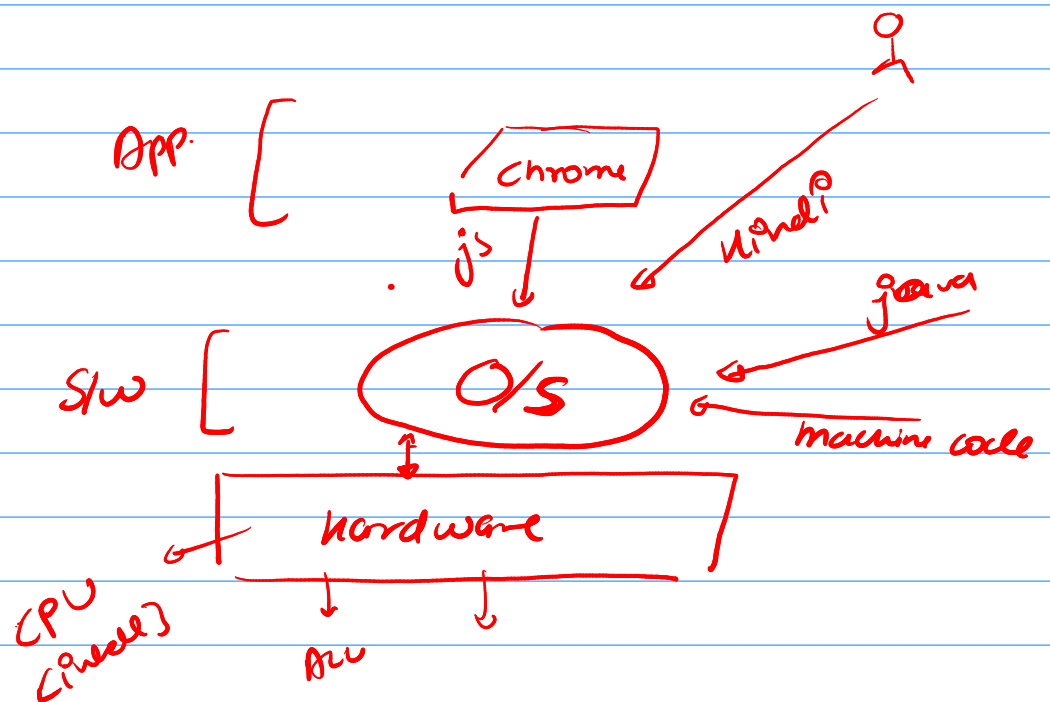 App.
Chrome
js
Hindi
java
S/w
O/s
machine code
hardware
CPU
ALU